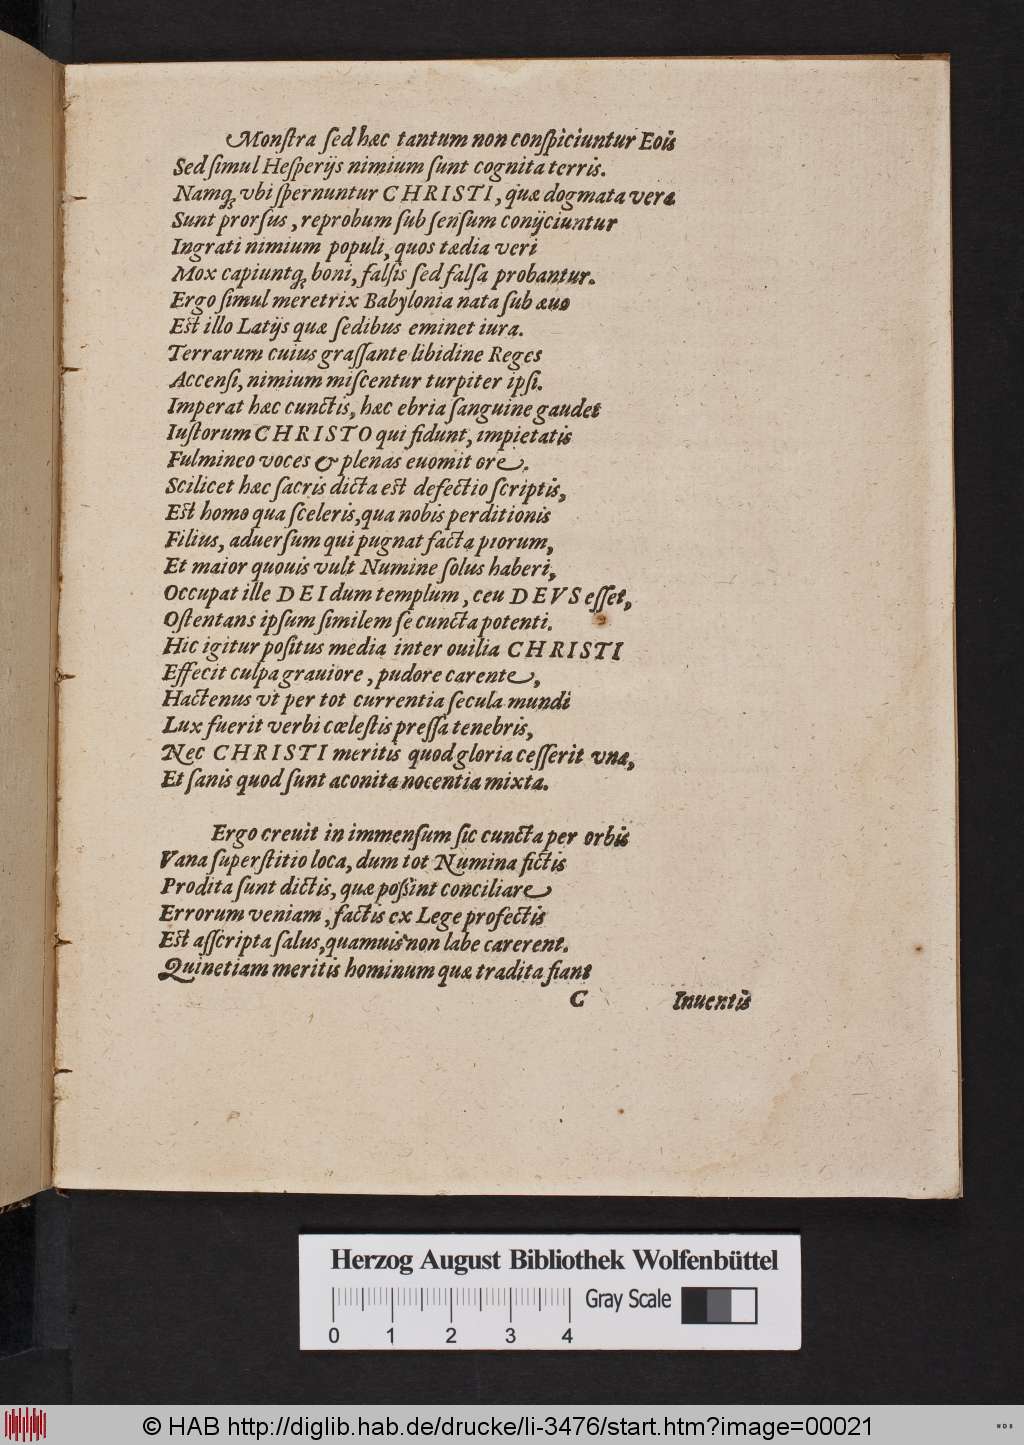 Monſtra ſed hæc tantum non conſpiciuntur Eois
Sed ſimul Heſperijs nimium ſunt cognita terris.
Namq́ꝫ vbi ſpernuntur CHRISTI, quæ dogmata vera
Sunt prorſus, reprobum ſub ſenſum conijciuntur
Ingrati nimium populi, quos tædia veri
Mox capiuntq́ꝫ boni, falſis ſed falſa probantur.
Ergo ſimul meretrix Babylonia nata ſub æuo
Eſt illo Latijs quæ ſedibus eminet iura.
Terrarum cuius graſſante libidine Reges
Accenſi, nimium miſcentur turpiter ipſi.
Imperat hæc cunctis, hæc ebria ſanguine gaudet
Iuſtorum CHRISTO qui fidunt, impietatis
Fulmineo voces & plenas euomit ore.
Scilicet hæc ſacris dicta eſt defectio ſcriptis,
Eſt homo qua ſceleris, qua nobis perditionis
Filius, aduerſum qui pugnat facta piorum,
Et maior quouis vult Numine ſolus haberi,
Occupat ille DEI dum templum, ceu DEVS eſſet,
Oſtentans ipſum ſimilem ſe cuncta potenti.
Hic igitur poſitus media inter ouilia CHRISTI
Effecit culpa grauiore, pudore carente,
Hactenus vt per tot currentia ſecula mundi
Lux fuerit verbi cœleſtis preſſa tenebris,
Nec CHRISTI meritis quod gloria ceſſerit vna,
Et ſanis quod ſunt aconita nocentia mixta.
Ergo creuit in immenſum ſic cuncta per orbis
Vana ſuperſtitio loca, dum tot Numina fictis
Prodita ſunt dictis, quæ poſſint conciliare
Errorum veniam, factis ex Lege profectis
Eſt aſſcripta ſalus, quamuis non labe carerent.
Quinetiam meritis hominum quæ tradita fiant
C Inuentis
Herzog August Bibliothek Wolfenbüttel
0 1 2 3 4 Gray Scale
© HAB http://diglib.hab.de/drucke/li-3476/start.htm?image=00021